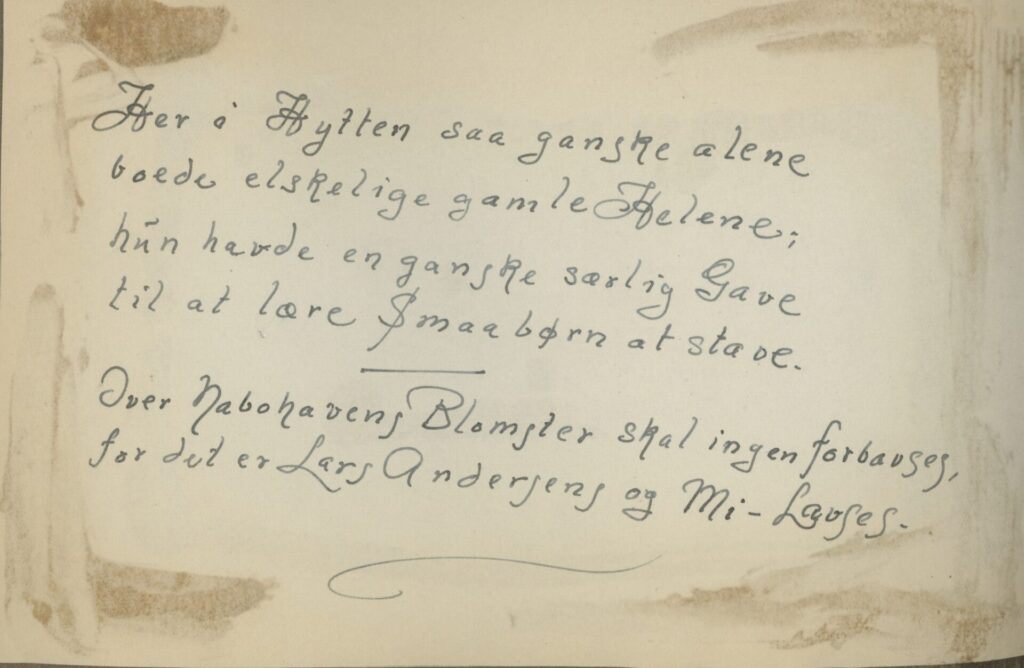 Her i Hytten saa ganske alene
boede elskelige gamle Helene;
hun havde en ganske særlig Gave
til at lære Smaabørn at stave.
Over Nabohavens Blomster skal ingen forbavses,
for det er Lars Andersens og Mi-Lavses.